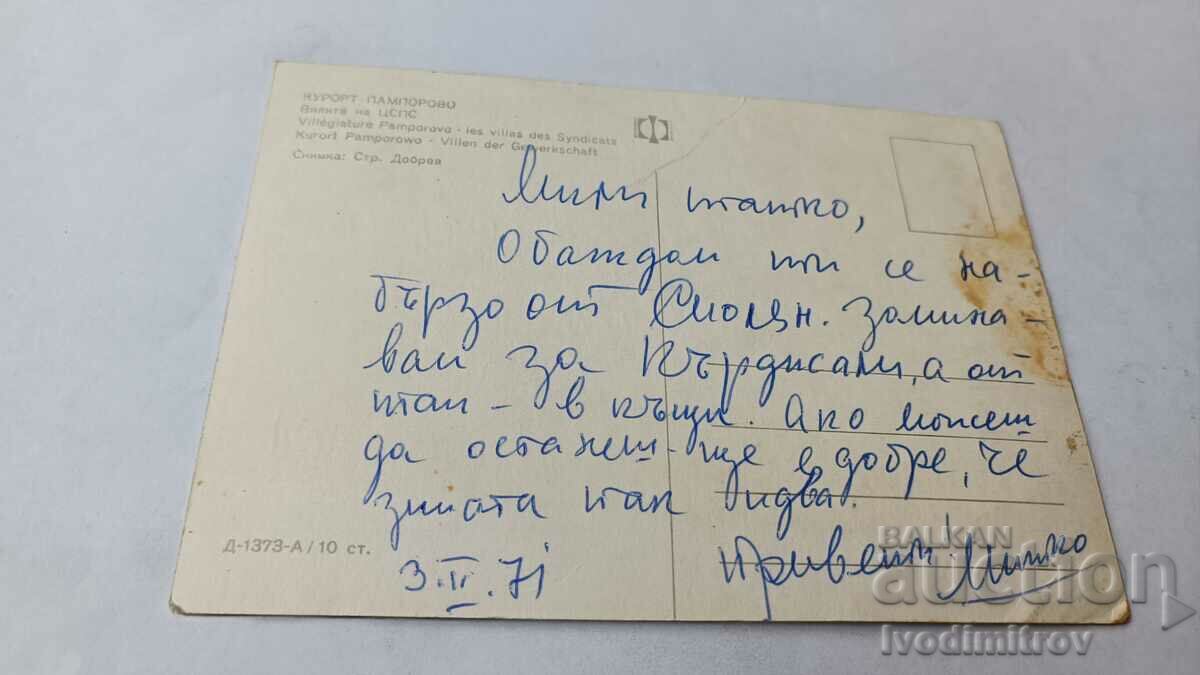 КУРОРТ ПАМПОРОВО
Вилите на ЦСПС
Villégiature Pamporovo - les villas des Syndicats
Kurort Pamporowo - Villen der Gewerkschaft
Снимка: Стр. Добрев
Мили татко,
Обаждам ти се на-
бързо от Смолян. Замина-
вам за Кърджали, а от
там - в къщи. Ако можеш
да останеш - ще е добре, че
зимата пак идва.
Привет: Митко
3.II.71
Д-1373-А/10 ст.
BALKAN
auction
Ivodimitrov